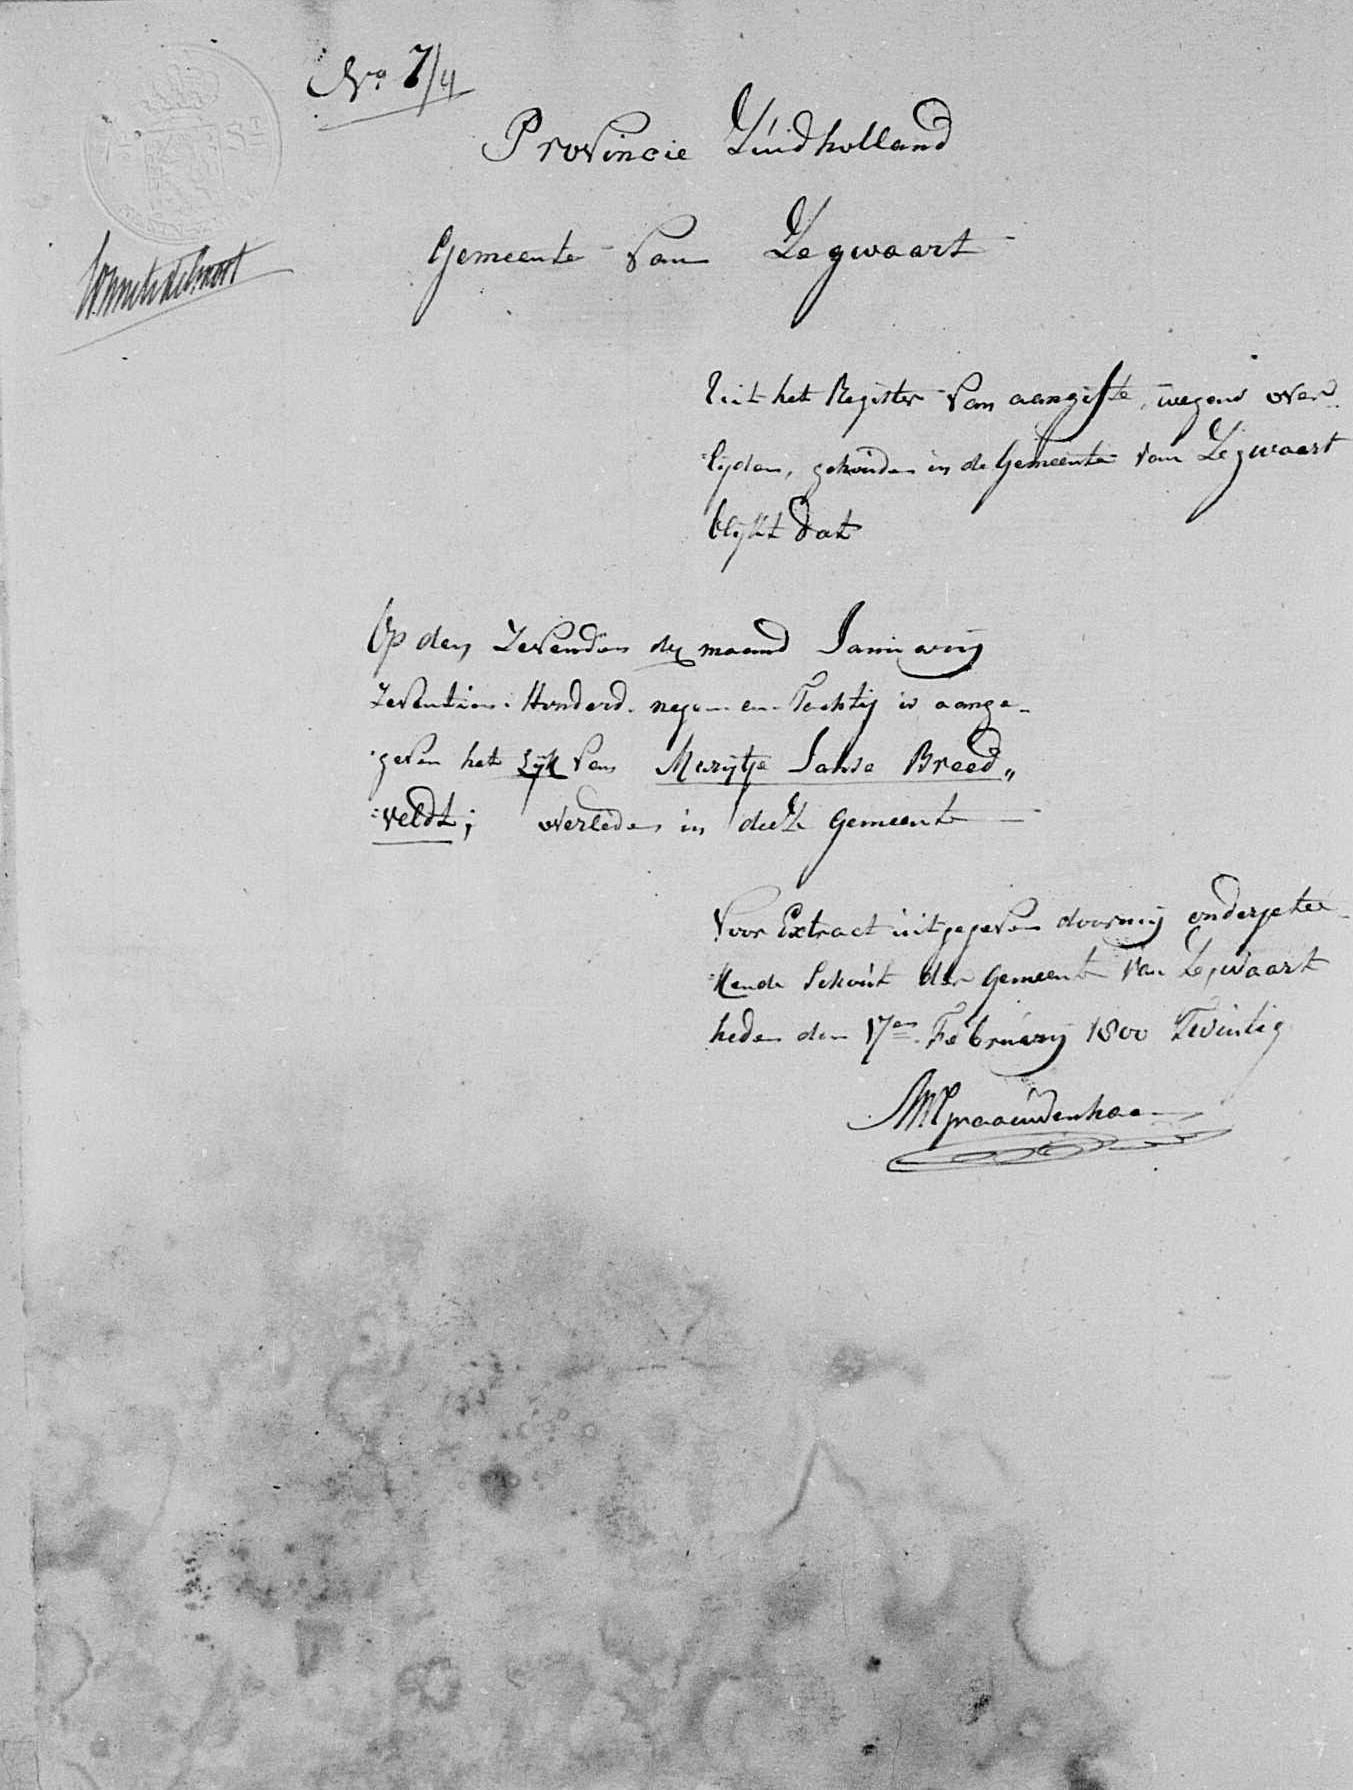 No. 7/4
Provincie Zuidholland
Gemeente van Zegwaart
Uit het Register van aangifte, wegens over
lyden, gehouden in de Gemeente van Zegwaart
blykt dat
Op den Zevenden der maand January
Zeventien Honderd negen en Tachtig is aange-
geven het Lyk van Marytje Janse Breed„
veldt; overleden in deeze Gemeente
Voor Extract uitgegeven door my ondergetee-
kende Schout der Gemeente van Zegwaart
heden den 17en February 1800 Twintig